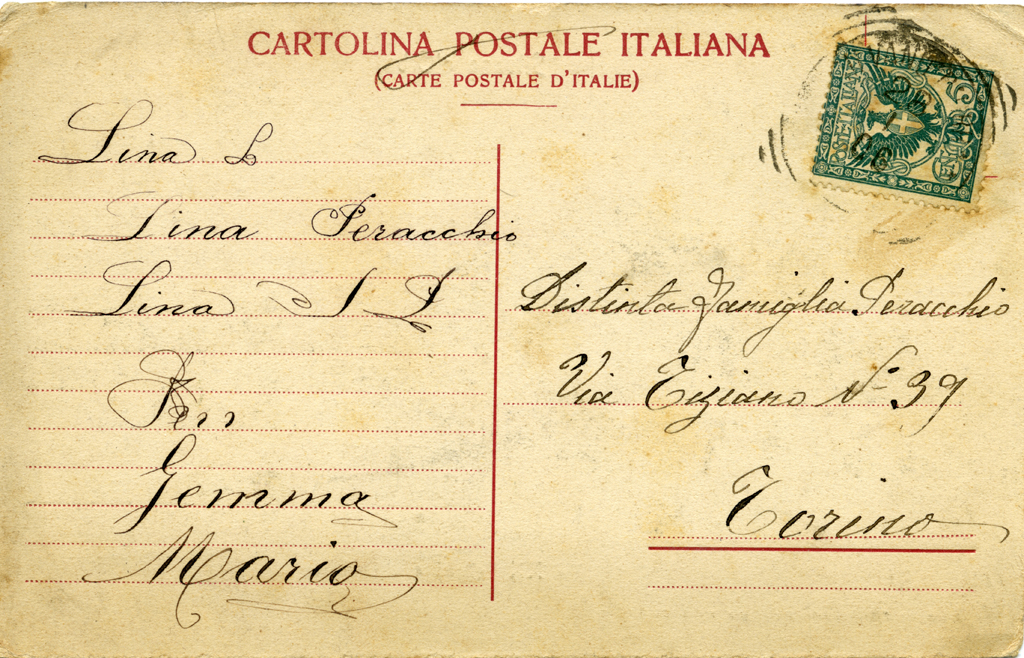 CARTOLINA POSTALE ITALIANA
(CARTE POSTALE D'ITALIE)
Lina L
Lina Peracchio
Lina I L
Per
Gemma
Maria
Distinta Famiglia Peracchio
Via Tiziano Nº 39
Torino
POSTE ITALIANE
C. 5